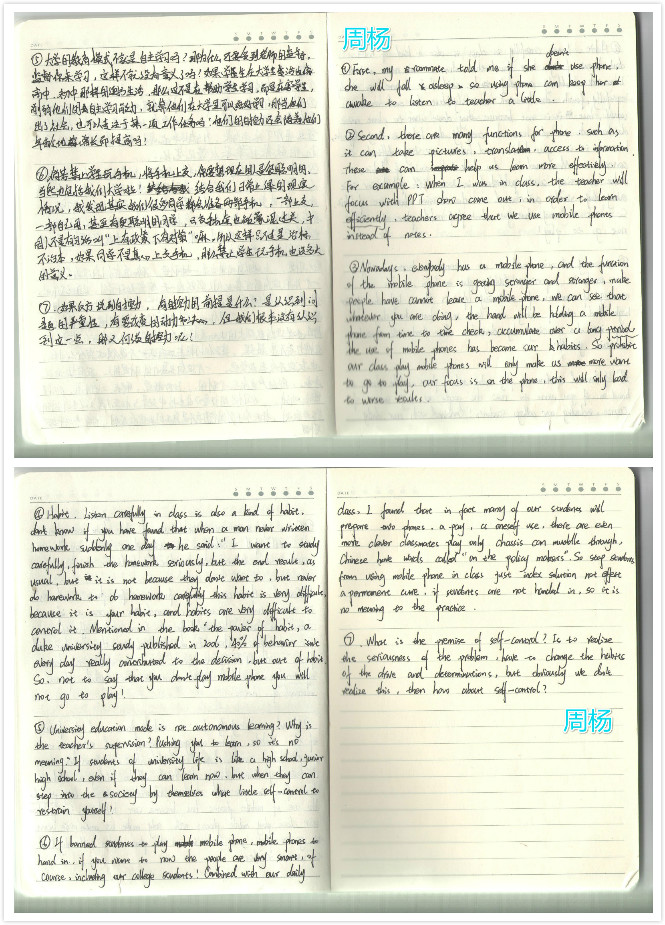 周杨
⑤大学的教育模式不就是自主学习吗？那为什么还要受到老师的监督，
出了社会，也可以专注于某一项工作任务吗？他们的自控力还会随着他们
年龄地增长而提高吗！
不治本，如果同学不是真心上交手机，那么禁止学生玩手机也没多大
的意义。
⑦.如果反方提到自控力，自控力的前提是什么？是认识到问
题的严重性，有要改变的动力和决心，但我们根本没有认识
到这一点，那又何谈自控力呢！
① First, my roommate told me if she doesn't use phone,
she will fall asleep. so using phone can keep her
awake to listen to teacher a little.
② Second, there are many functions for phone. such as
it can take pictures, translation, access to information
These can help us learn more effectively.
For example: When I was in class, the teacher will
focus with PPT show came out, in order to learn
efficiently, teachers agree that we use mobile phones
instead of notes.
③ Nowadays, everybody has a mobile phone, and the function
of the mobile phone is getting stranger and stranger, make
people have cannot leave a mobile phone, we can see that
whatever you are doing, the hand will be holding a mobile
phone from time to time check, accumulate over a long period
the use of mobile phones has became our habits. So prohibit
our class play mobile phones will only make us more want
to go to play, our focus is on the phone, this will only lead
to worse results.
④ Habit. Listen carefully in class is also a kind of habit.
dont know if you have found that when a man never written
homework suddenly one day he said: "I want to study
carefully, finish the homework seriously, but the end result, as
usual, but it is not because they don't want to, but never
do homework to do homework carefully this habit is very difficult,
because it is your habit, and habits are very difficult to
control it. Mentioned in the book "the power of habit, a
duke university study published in 2006, 40% of behavior isn't
every day really contributed to the decision, but out of habit.
So, not to say that you don't play mobile phone you will
not go to play!
⑤ University education mode is not autonomous learning? Why is
the teacher's supervision? Pushing you to learn, so it's no
meaning? If students of university life is like a high school, junior
high school, even if they can learn now, but when they can
step into the society by themselves what little self-control to
restrain yourself!
⑥ If banned students to play mobile phone, mobile phones to
hand in, if you want to now the people are very smart, of
course, including our college students! Combined with our daily
class. I found that in fact many of our students will
prepare two phones. a pay, a oneself use. there are even
more clever classmates play only chassis can muddle through,
Chinese have words called "on the policy makers". So stop students
from using mobile phone in class just index solution not effect
a permanent cure, if students are not handed in, so it is
no meaning to the practice.
⑦. What is the premise of self-control? Is to realize
the seriousness of the problem, have to change the habits
of the drive and determinations, but obviously we don't
realize this, then how about self-control?
周杨